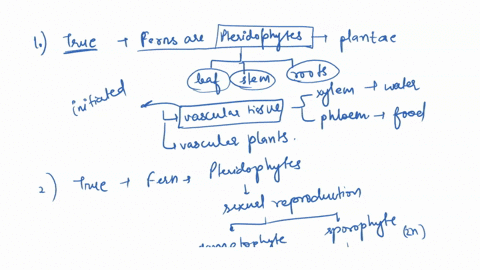 1.) True → Ferns are Pteridophytes → plantae
leaf stem roots
initiated
vascular tissue xylem → water
phloem → food
vascular plants.
2) True → Fern → Pteridophytes
sexual reproduction
sporophyte (2n)